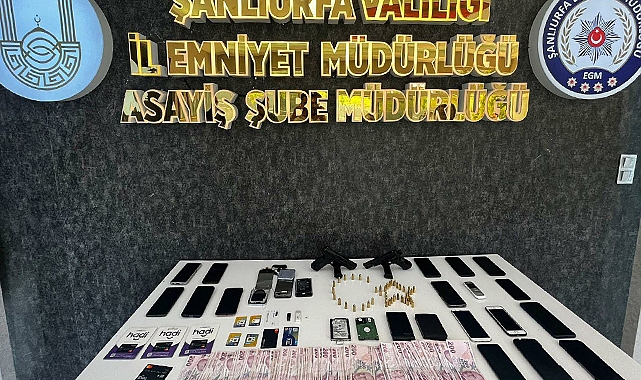 ŞANLIURFA VALİLİĞİ
İL EMNİYET MÜDÜRLÜĞÜ
ASAYİŞ ŞUBE MÜDÜRLÜĞÜ
ŞANLIURFA
EGM
hadi
hadi
hadi
200